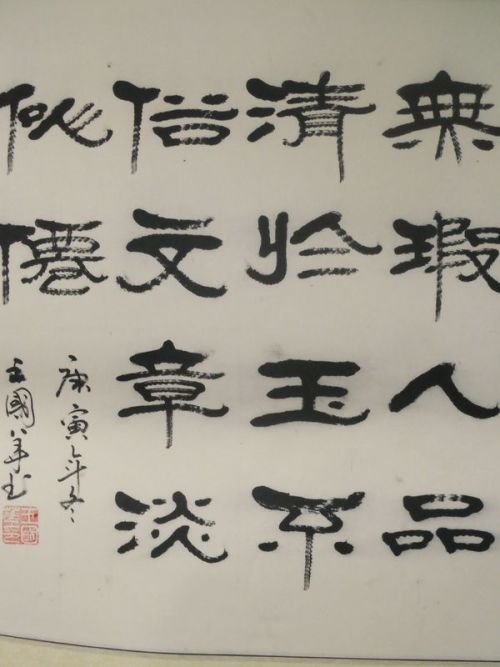 無瑕人品
清於玉不
俗文章淡
似僊
庚寅年冬
王國